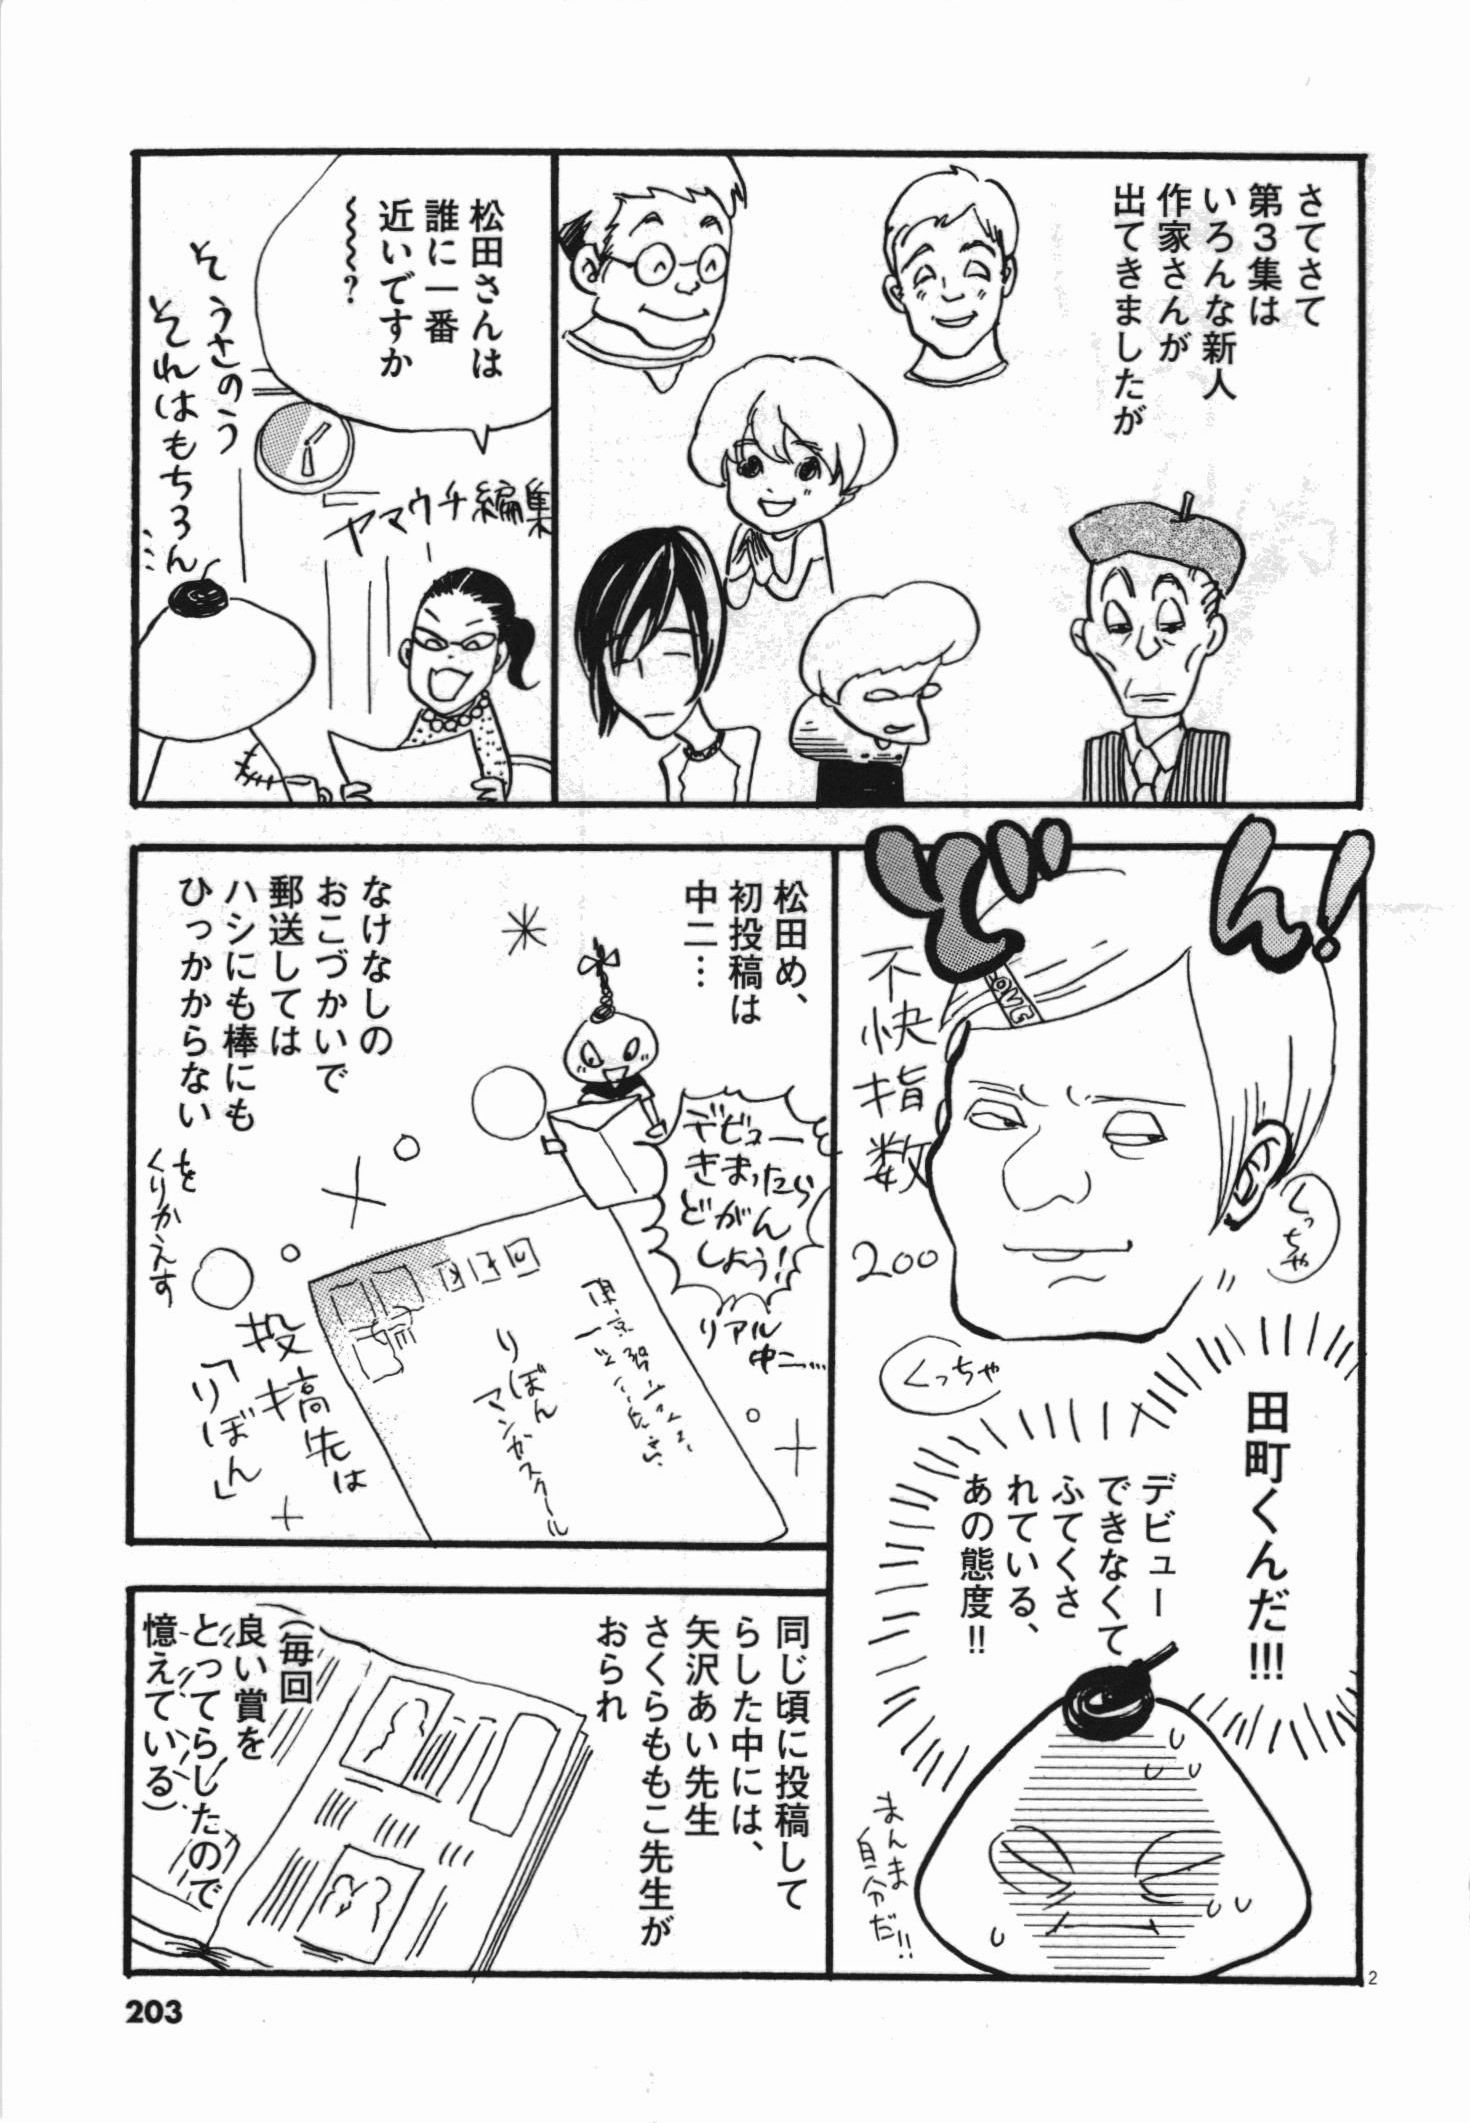 さてさて
第3集は
いろんな新人
作家さんが
出てきましたが
松田さんは
誰に一番
近いですか
〜〜〜?
ヤマウチ編集
そうさのう
それはもちろん
どん!
不快指数
200
LOVE
くっちゃ
くっちゃ
田町くんだ!!!
デビュー
できなくて
ふてくさ
れている、
あの態度!!
まんま
自分だ!!
松田め、
初投稿は
中二…
デビュー
きまったら
どがん
しよう!
リアル
中二…
なけなしの
おこづかいで
郵送しては
ハシにも棒にも
ひっかからない
を
くりかえす
りぼん
マンガスクール
投稿先は
「りぼん」
同じ頃に投稿して
らした中には、
矢沢あい先生
さくらももこ先生が
おられ
(毎回
良い賞を
とってらしたので
憶えている)
2
203